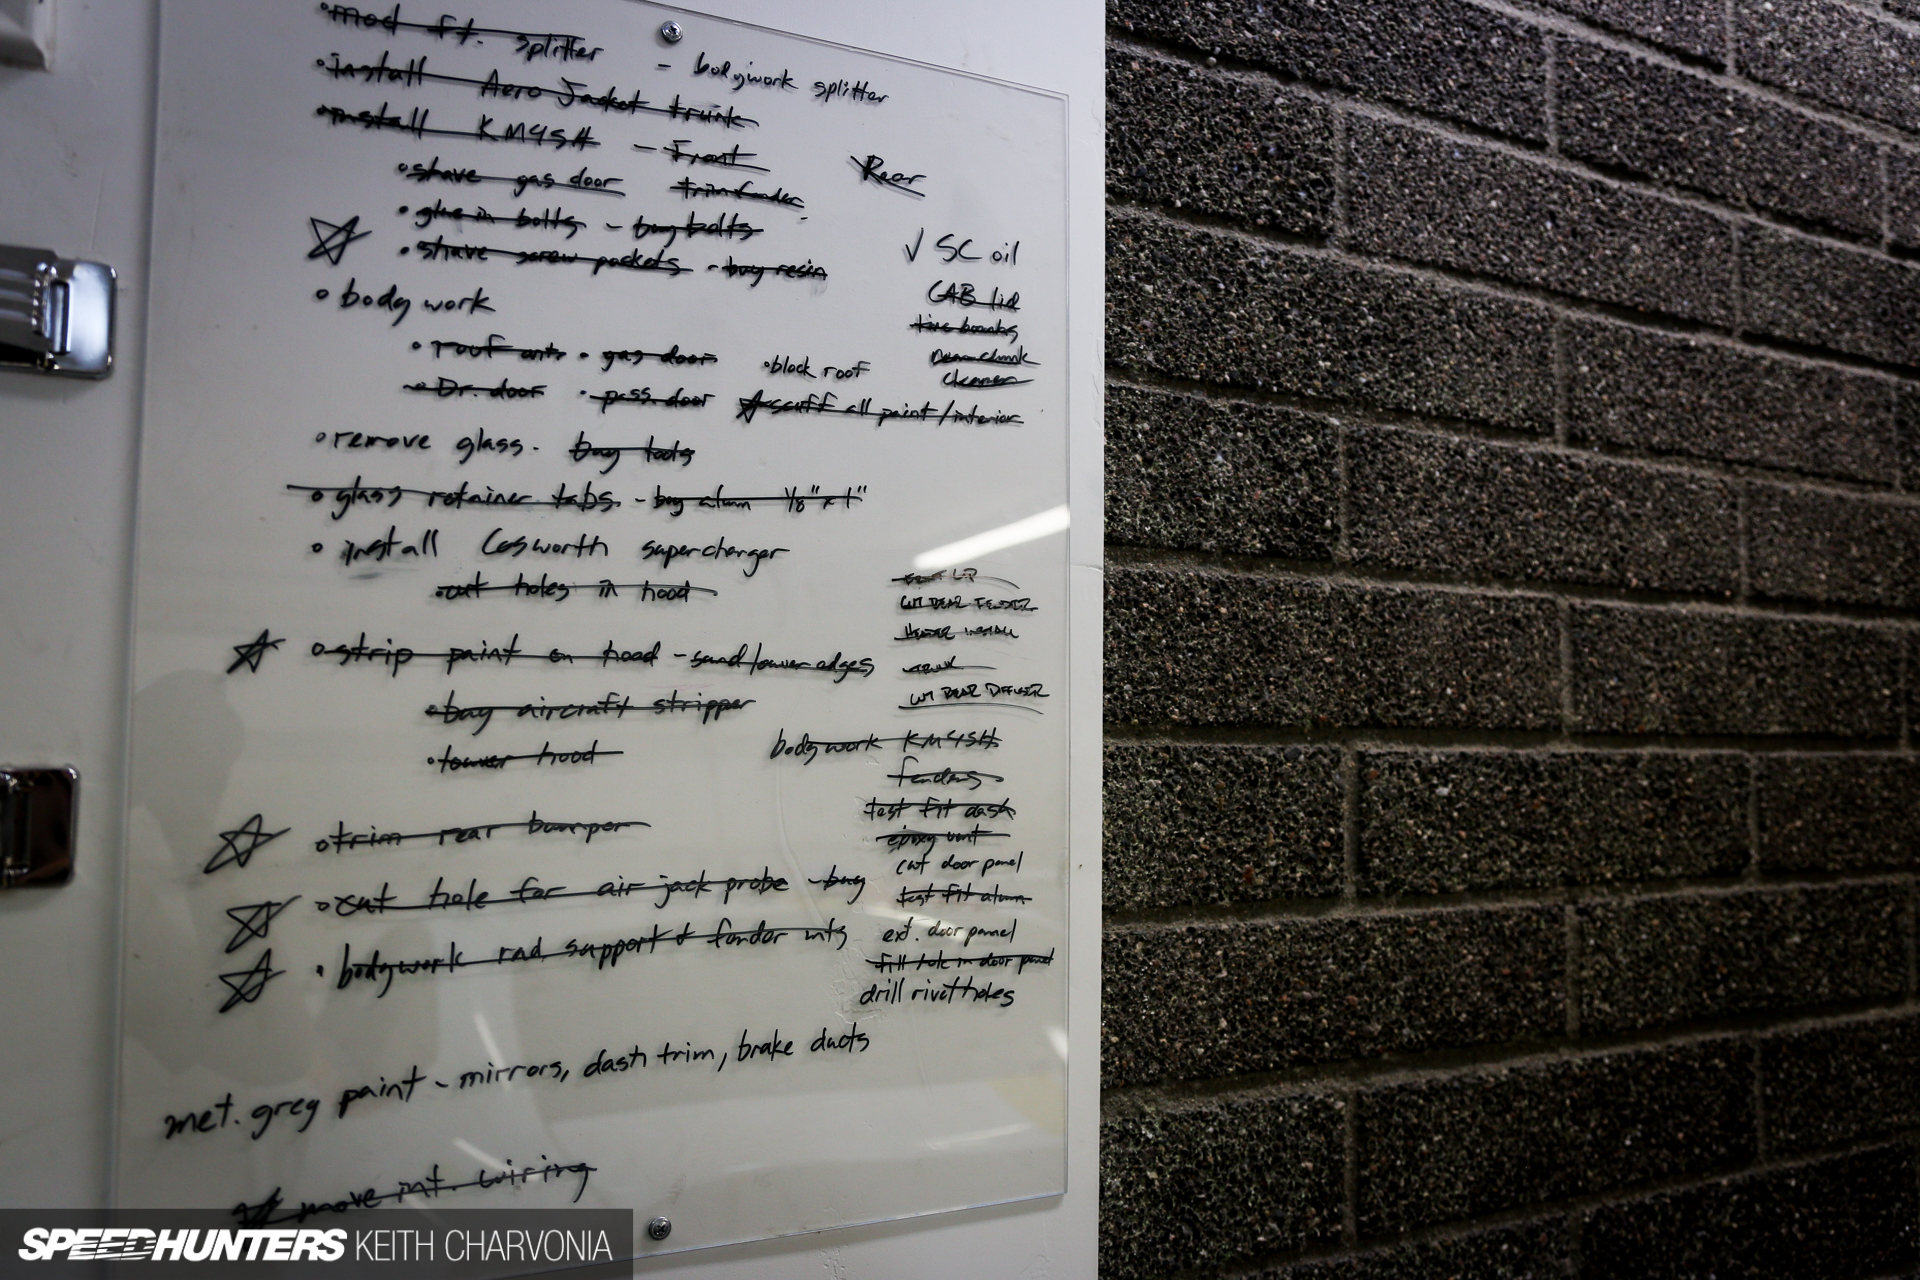 • mod ft. splitter - bodywork splitter
• install Aero Jacket trunk
• install KM4SH - Front Rear
• shave gas door trim fender
• glue in bolts - buy bolts
• shave screw pockets - buy resin
√ SC oil
• body work
CAB lid
• roof mts • gas door • block roof
cleaner
• Dr. door • pass. door scuff all paint/interior
• remove glass. buy tools
• glass retainer tabs - buy alum 1/8" x 1"
• install Cosworth supercharger
• cut holes in hood
CUT REAR FENDER
INSTALL
• strip paint on hood - sand lower edges
CUT REAR DIFFUSER
• buy aircraft stripper
• lower hood
bodywork KM4SH
fenders
test fit dash
• trim rear bumper
epoxy vent
cut door panel
• cut hole for air jack probe - buy
test fit alum
• bodywork rad. support & fender mts
ext. door pannel
fill hole in door panel
drill rivet holes
met. grey paint - mirrors, dash trim, brake ducts
move int. wiring
SPEEDHUNTERS KEITH CHARVONIA